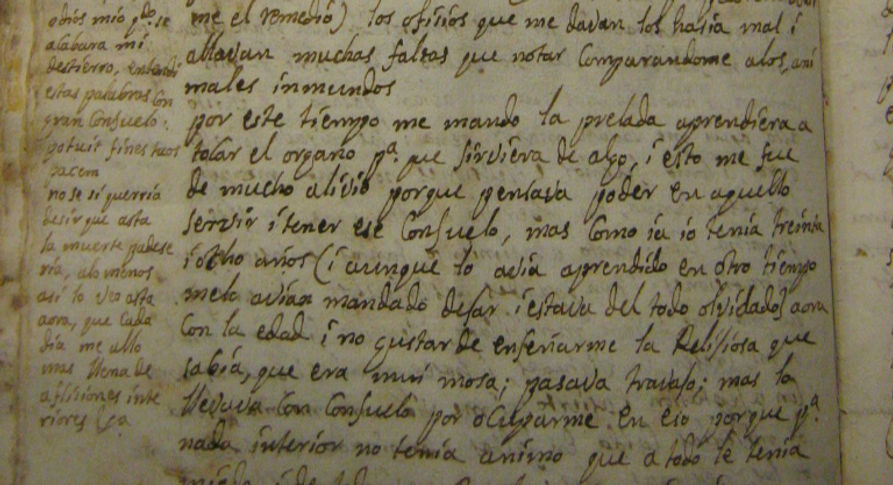 odiós mió pᵃ. se
alabara mi
destierro, entendi
estas palabras con
gran Consuelo:
posuit fines tuos
pacem
no se si querria
desir que asta
la muerte padese
ria, alo menos
asi lo veo asta
aora, que Cada
dia me allo
mas llena de
aflisiones inte
riores
me el remedio) los ofisios que me davan los hasia mal i
allavan muchas faltas que notar Comparandome alos, ani
males inmundos
por este tiempo me mando la prelada aprendiera a
tocar el organo pᵃ. que sirviera de algo, i esto me fue
de mucho alivio porque pensava poder en aquello
servir i tener ese Consuelo, mas Como ia io tenia treinta
i ocho años (i aunque lo avia aprendido en otro tiempo
melo avian mandado desar i estava del todo olvidado) aora
Con la edad i no gustar de enseñarme la Relijiosa que
sabia, que era mui mosa; pasava travajo; mas lo
llevava Con Consuelo por ocuparme en eso porque pᵃ.
nada interior no tenia animo que a todo le tenia